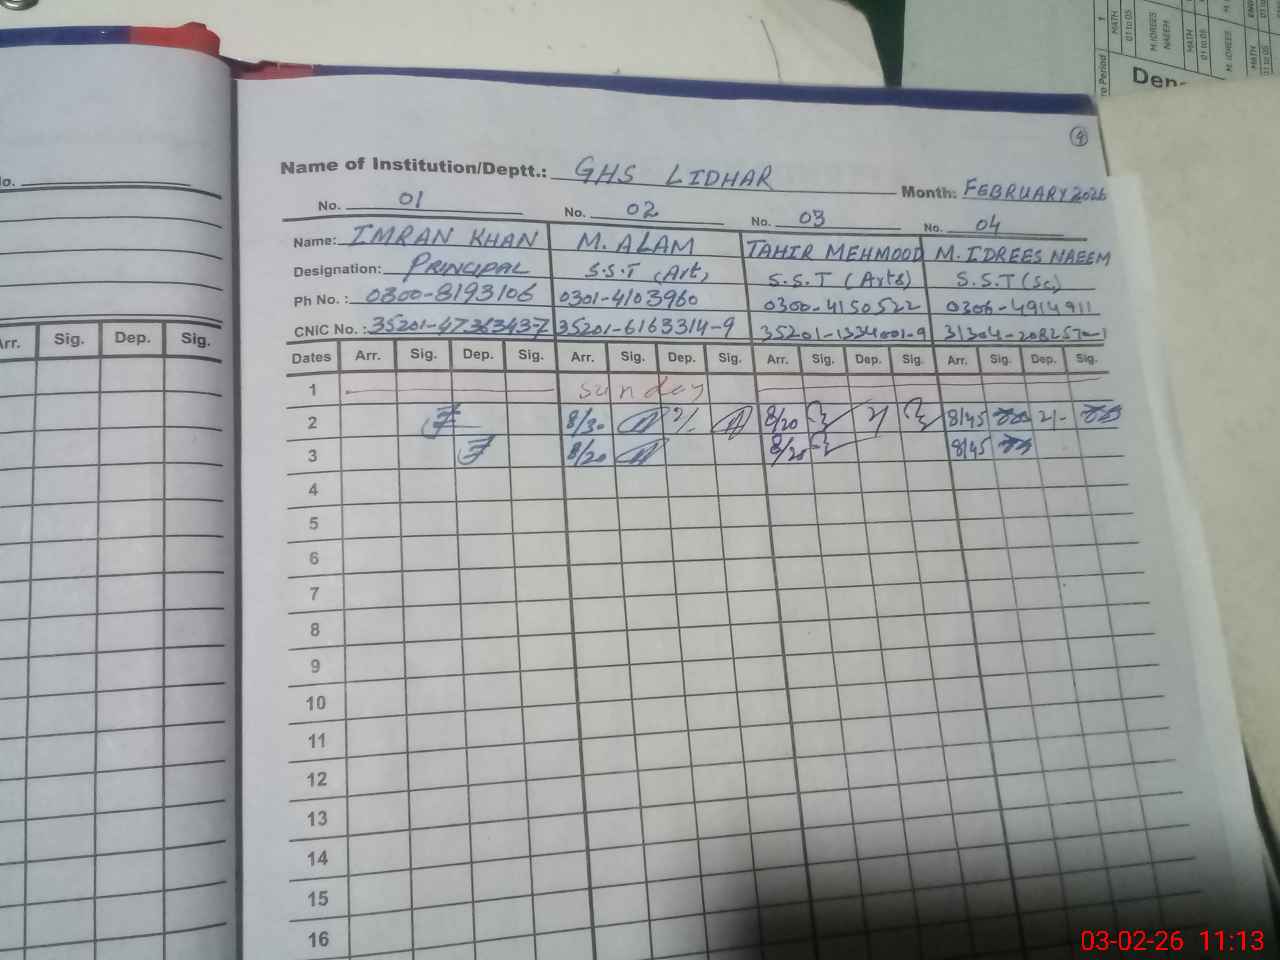 Name of Institution/Deptt.: GHS LIDHAR Month: FEBRUARY 2026
No. 01 No. 02 No. 03 No. 04
Name: IMRAN KHAN M. ALAM TAHIR MEHMOOD M. IDREES NAEEM
Designation: PRINCIPAL S.S.T (Art) S.S.T (Arts) S.S.T (Sc)
Ph No. : 0300-8193106 0301-4103960 0300-4150522 0306-4914911
CNIC No. : 35201-4736343-7 35201-6163314-9 35201-1334001-9
Dates Arr. Sig. Dep. Sig. Arr. Sig. Dep. Sig. Arr. Sig. Dep. Sig. Arr. Sig. Dep. Sig.
1 Sunday
2 8/30 2/- 8/20 2/ 8/45 2/-
3 8/20 8/20 8/45
4
5
6
7
8
9
10
11
12
13
14
15
16
No.
Arr. Sig. Dep. Sig.
9
MATH
01 to 05
M. IDREES
NAEEM
MATH
01 to 05
M. IDREES
MATH
Period
03-02-26 11:13